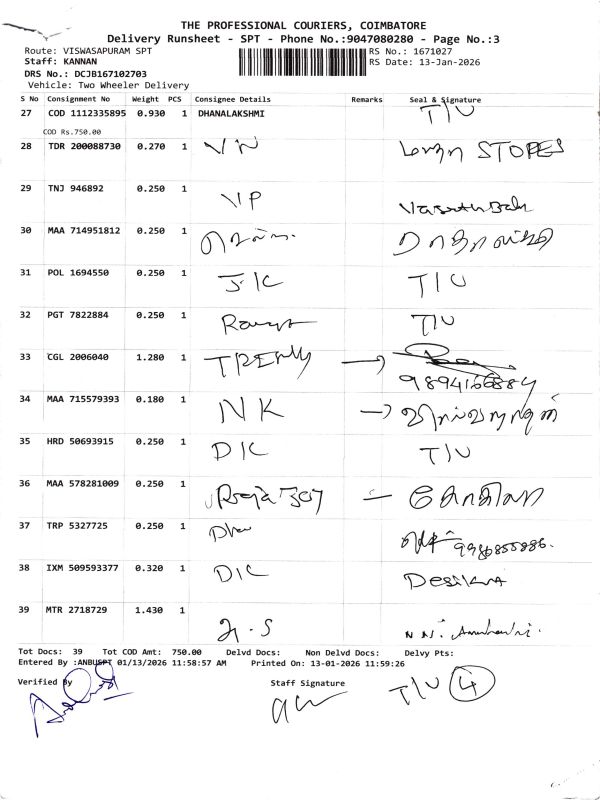 THE PROFESSIONAL COURIERS, COIMBATORE
Delivery Runsheet - SPT - Phone No.:9047080280 - Page No.:3
Route: VISWASAPURAM SPT
RS No.: 1671027
Staff: KANNAN
RS Date: 13-Jan-2026
DRS No.: DCJB167102703
Vehicle: Two Wheeler Delivery
S No Consignment No Weight PCS Consignee Details Remarks Seal & Signature
27 COD 1112335895 0.930 1 DHANALAKSHMI T/U
COD Rs.750.00
28 TDR 200088730 0.270 1 VN STORES
29 TNJ 946892 0.250 1 VP
30 MAA 714951812 0.250 1
31 POL 1694550 0.250 1 J/C T/U
32 PGT 7822884 0.250 1 T/U
33 CGL 2006040 1.280 1 →
9894166884
34 MAA 715579393 0.180 1 NK →
35 HRD 50693915 0.250 1 D/C T/U
36 MAA 578281009 0.250 1 — கோகிலா
37 TRP 5327725 0.250 1
38 IXM 509593377 0.320 1 D/C Desikan
39 MTR 2718729 1.430 1
Tot Docs: 39 Tot COD Amt: 750.00 Delvd Docs: Non Delvd Docs: Delvy Pts:
Entered By :ANBUSPT 01/13/2026 11:58:57 AM Printed On: 13-01-2026 11:59:26
Verified By Staff Signature T/U 4